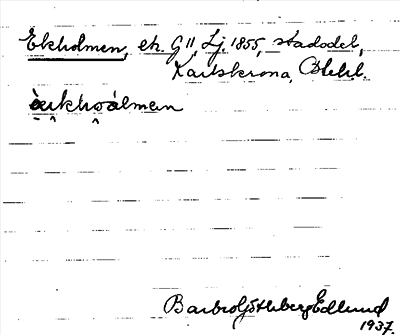 Ekholmen, ek. G 11, Lj. 1855, stadsdel,
Karlskrona, Blek.
èikhoálmen
Barbro Göthberg Edlund
1937.